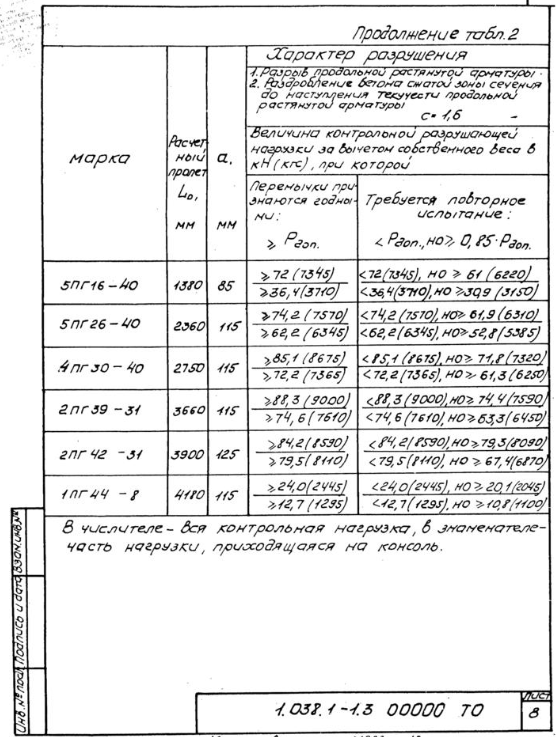 Продолжение табл. 2
Марка
Расчет
ный
пролет
L₀,
мм
а,
мм
Характер разрушения
1. Разрыв продольной растянутой арматуры.
2. Раздробление бетона сжатой зоны сечения
до наступления текучести продольной
растянутой арматуры
с = 1,6 –
Величина контрольной разрушающей
нагрузки за вычетом собственного веса в
кН (кгс), при которой
Перемычки при-
знаются годны-
ми:
≥ Рдоп.
Требуется повторное
испытание:
< Рдоп., но ≥ 0,85·Рдоп.
5ПГ16-40 1380 85 ≥72 (7345) <72 (7345), но ≥ 61 (6220)
≥36,4 (3710) <36,4 (3710), но ≥30,9 (3150)
5ПГ26-40 2360 115 ≥74,2 (7570) <74,2 (7570), но ≥ 61,9 (6310)
≥62,2 (6345) <62,2 (6345), но ≥ 52,8 (5385)
4ПГ30-40 2750 115 ≥85,1 (8675) <85,1 (8675), но ≥ 71,8 (7320)
≥72,2 (7365) <72,2 (7365), но ≥ 61,3 (6250)
2ПГ39-31 3660 115 ≥88,3 (9000) <88,3 (9000), но ≥ 74,4 (7590)
≥74,6 (7610) <74,6 (7610), но ≥ 63,3 (6450)
2ПГ42-31 3900 125 ≥84,2 (8590) <84,2 (8590), но ≥ 79,3 (8090)
≥79,5 (8110) <79,5 (8110), но ≥ 67,4 (6870)
1ПГ44-8 4180 115 ≥24,0 (2445) <24,0 (2445), но ≥ 20,1 (2045)
≥12,7 (1295) <12,7 (1295), но ≥ 10,8 (1100)
В числителе – вся контрольная нагрузка, в знаменателе-
часть нагрузки, приходящаяся на консоль.
Инв. № подл. Подпись и дата Взам. инв. №
1.038.1-1.3 00000 ТО
Лист
8